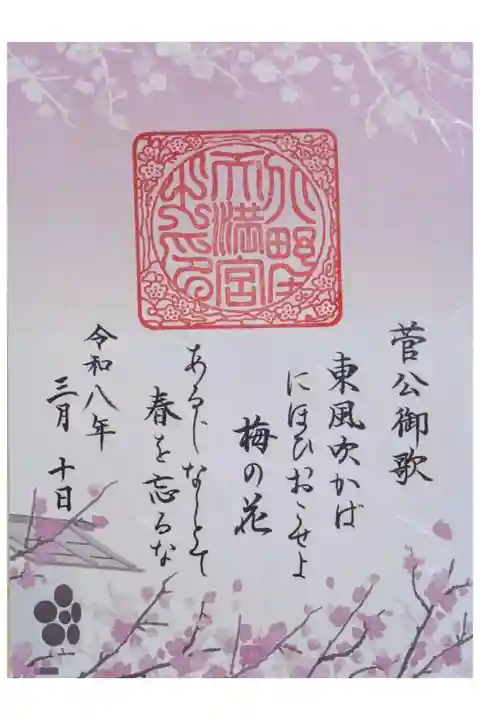 菅公御歌
東風吹かば
にほひおこせよ
梅の花
あるじなしとて
春を忘るな
令和八年
三月 十日
天満宮